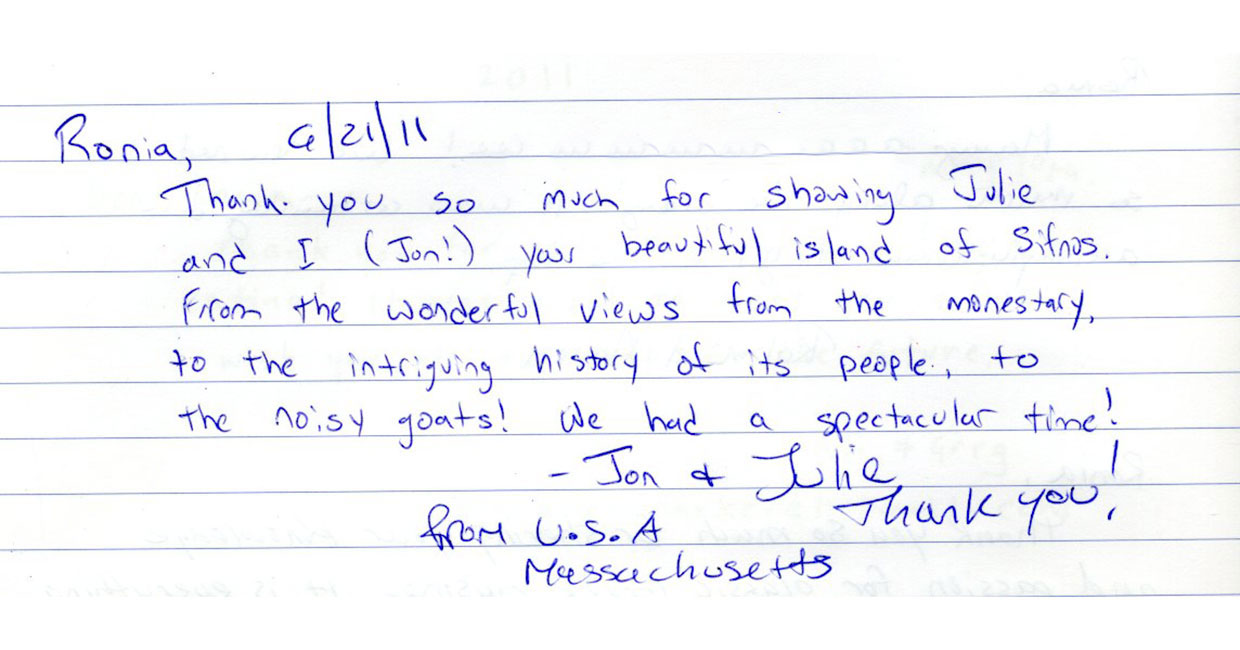 Ronia, 6/21/11
Thank you so much for showing Julie
and I (Jon!) your beautiful island of Sifnos.
From the wonderful views from the monestary,
to the intriguing history of its people, to
the noisy goats! We had a spectacular time!
- Jon & Julie
Thank you!
from U.S.A
Massachusetts